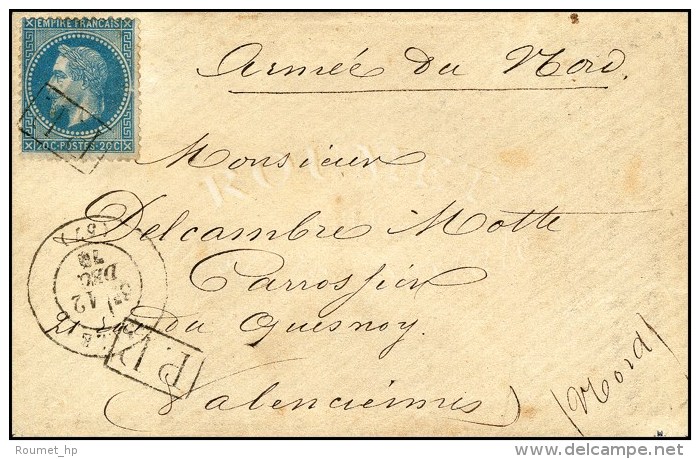 EMPIRE FRANÇAIS
20C·POSTES·20C
Armée du Nord.
ROUMET
Monsieur
Delcambre Motte
Carrossier
21 rue du Quesnoy
Valenciennes
(Nord)
(57)
12
DEC
70
P.D.
Roumet_hp
delcampe.net